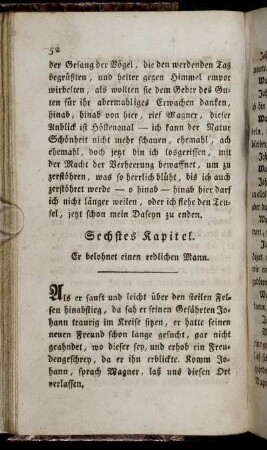 52
der Gesang der Vögel, die den werdenden Tag
begrüßten, und heiter gegen Himmel empor
wirbelten, als wollten sie dem Geber des Gu-
ten für ihr abermahliges Erwachen danken,
hinab, hinab von hier, rief Wagner, dieser
Anblick ist Höllenqual — ich kann der Natur
Schönheit nicht mehr schauen, ehemahl, ach
ehemahl, doch jetzt bin ich losgerissen, mit
der Macht der Verheerung bewaffnet, um zu
zerstöhren, was so herrlich blüht, bis ich auch
zerstöhret werde — o hinab — hinab hier darf
ich nicht länger weilen, oder ich flehe den Teu-
fel, jetzt schon mein Daseyn zu enden.
Sechstes Kapitel.
Er belohnet einen redlichen Mann.
Als er sanft und leicht über den steilen Fel-
sen hinabstieg, da sah er seinen Gefährten Jo-
hann traurig im Kreise sitzen, er hatte seinen
neuen Freund schon lange gesucht, gar nicht
geahndet, wo dieser sey, und erhob ein Freu-
dengeschrey, da er ihn erblickte. Komm Jo-
hann, sprach Wagner, laß uns diesen Ort
verlassen,